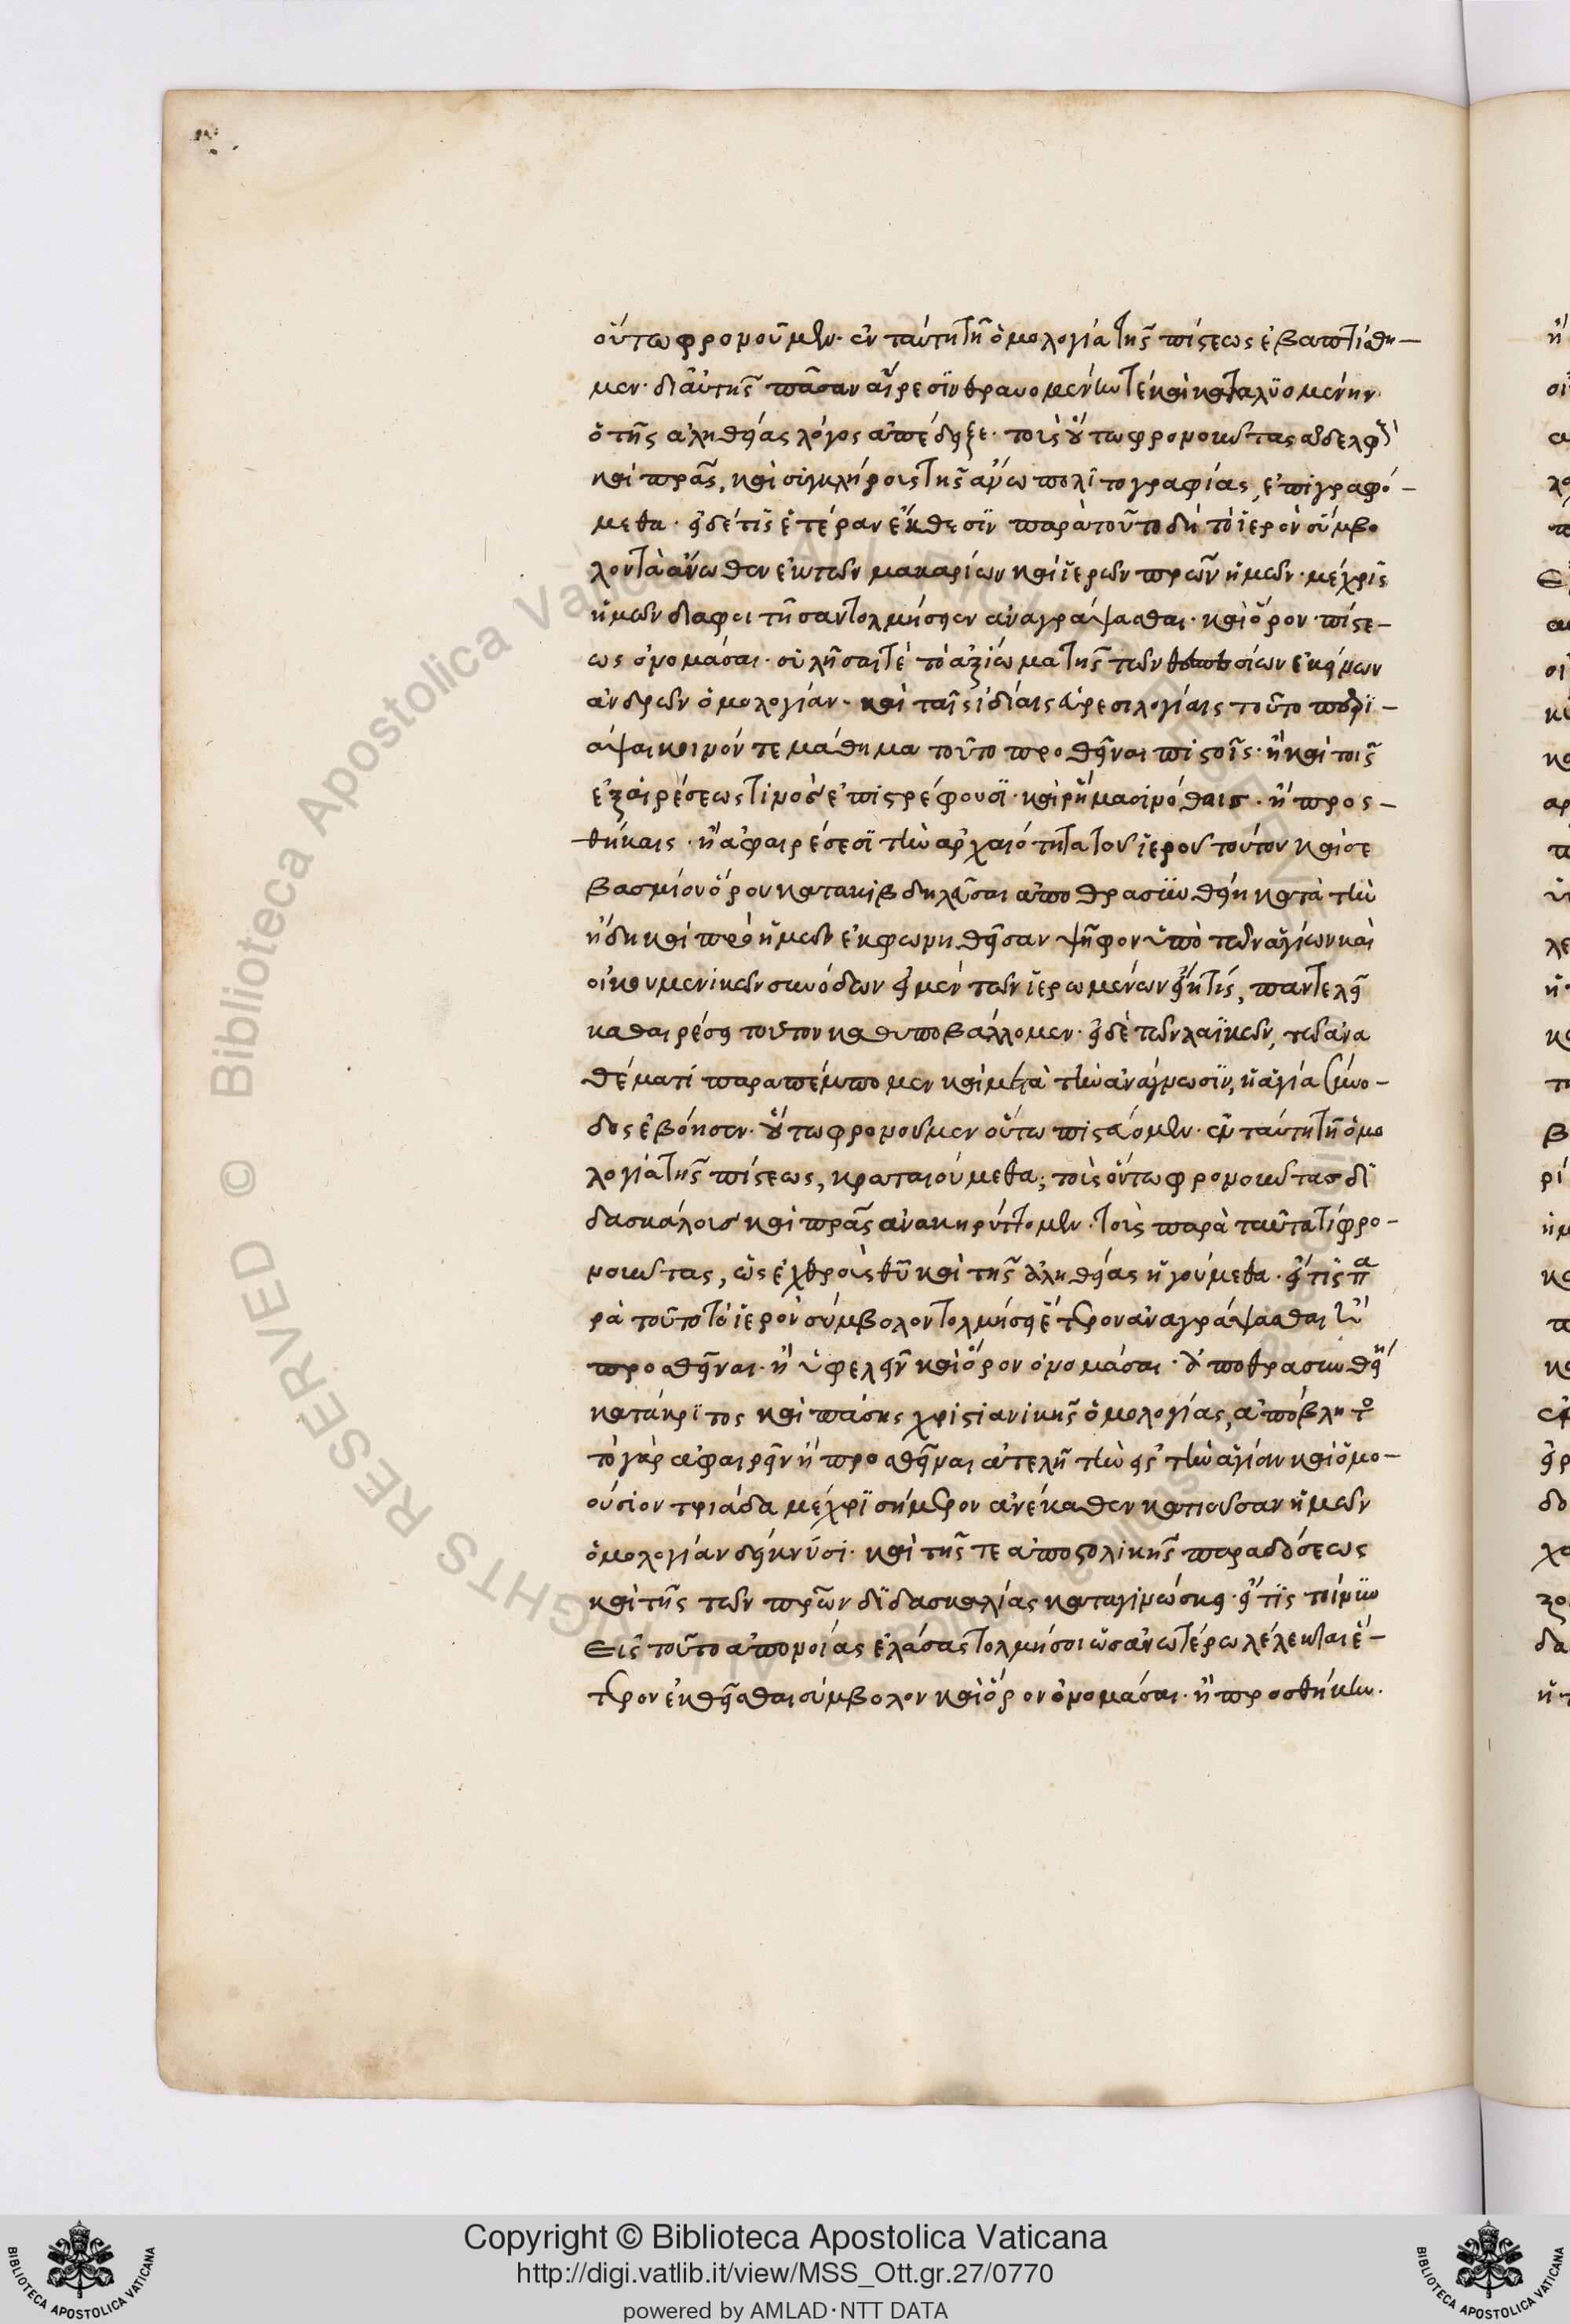 οὕτω φρονοῦμεν· ἐν ταύτη τῆ ὁμολογία τῆς πίστεως ἐβαπτίσθη-
μεν· δι αὐτης πᾶσαν αἵρεσϊν θραυομένην τὲ καὶ καταλϋομένην
ὁ τῆς ἀληθείας λόγος ἀπέδειξε· τοὺς οὕτω φρονοῦντας ἀδελφοὺς
καὶ πρας, καὶ σιγκλήρους τῆς ἄνω πολϊτογραφίας, ἐπιγραφό-
μεθα· εἰ δέ τϊς ἑτέραν ἔκθεσϊν παρὰ τοῦτο δὴ τὸ ἱερὸν σύμβο
λον τὸ ἄνωθεν ἐκ τῶν μακαρίων καὶ ἱερῶν πρων ἡμῶν· μέχρις
ἡμῶν διαφοιτῆσαν τολμήσειεν ἀναγράψασθαι· καὶ ὅρον πίστε-
ως ὀνομάσαι· συλῆσαι τὲ τὸ ἀξίωμα τῆς τῶν θεσπεσίων ἐκείνων
ἀνδρῶν ὁμολογίαν· καὶ ταῖς ἰδίαις εὑρεσιλογίαις τοῦτο περϊ-
άψαι κοινόν τε μάθημα τοῦτο προθεῖναι πιστοῖς· ἢ καὶ τοις
ἐξ αἱρέσεως τινὸς ἐπιστρέφουσϊ· καὶ ῥήμασι νόθαις· ἢ προσ-
θήκαις· ἢ ἀφαιρέσεσϊ τὴν ἀρχαιότητα τοῦ ἱεροῦ τούτου καὶ σε
βασμίου ὅρου κατακιβδηλεῦσαι ἀποθρασυνθείη κατὰ τὴν
ἤδη καὶ πρὸ ἡμῶν ἐκφωνηθεῖσαν ψῆφον ὑπὸ τῶν ἁγίων καὶ
οἰκουμενικῶν συνόδων εἰ μὲν τῶν ἱερωμένων εἴη τίς, παντελεῖ
καθαιρέσει τοῦτον καθυποβάλλομεν· εἰ δὲ τῶν λαϊκῶν, τῶ ἀνα
θέματί παραπέμπομεν καὶ μετὰ τὴν ἀνάγνωσϊν, ἡ ἁγία σύνο-
δος ἐβόησεν· οὕτω φρονοῦμεν οὕτω πιστεύομεν· ἐν ταύτη τῆ ὁμο
λογία τῆς πίστεως, κραταιούμεθα; τοὺς οὕτω φρονοῦντας δϊ
δασκάλους καὶ πρας ἀνακηρύττομεν· τοὺς παρὰ ταῦτα τί φρο-
νοῦντας, ὡς ἐχθροὺς θῦ καὶ τῆς ἀληθείας ἡγούμεθα· εἴ τϊς πα
ρὰ τοῦτο τὸ ἱερὸν σύμβολον τολμήσει ἕτερον ἀναγράψασθαι ἢ
προσθεῖναι· ἢ ὑφελεῖν καὶ ὅρον ὀνομάσαι· ἀποθρασυνθείη
κατάκρϊτος καὶ πάσης χριστιανικῆς ὁμολογίας, ἀπόβλητο
τὸ γὰρ ἀφαιρεῖν ἢ προσθεῖναι ἀτελῆ τὴν εἰς τὴν ἁγίαν καὶ ὁμο-
ούσιον τριάδα μέχρϊ σήμερον ἀνέκαθεν κατιοῦσαν ἡμῶν
ὁμολογίαν δείκνϋσι· καὶ τῆς τε ἀποστολικῆς παραδόσεως
καὶ τῆς τῶν πρων δϊδασκαλίας καταγινώσκει· εἴ τϊς τοίνϋν
εἰς τοῦτο ἀπονοίας ἐλάσας τολμήσοι ὡς ἀνωτέρω λέλεκται ἕ-
τερον ἐκθεῖσθαι σύμβολον καὶ ὅρον ὀνομάσαι· ἢ προσθήκην·
Copyright © Biblioteca Apostolica Vaticana
http://digi.vatlib.it/view/MSS_Ott.gr.27/0770
powered by AMLAD·NTT DATA